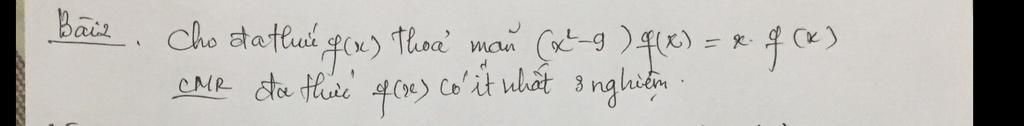 Bài 2. Cho đa thức f(x) thoả mãn (x²-9) f(x) = x. f(x)
CMR đa thức f(x) có ít nhất 3 nghiệm.